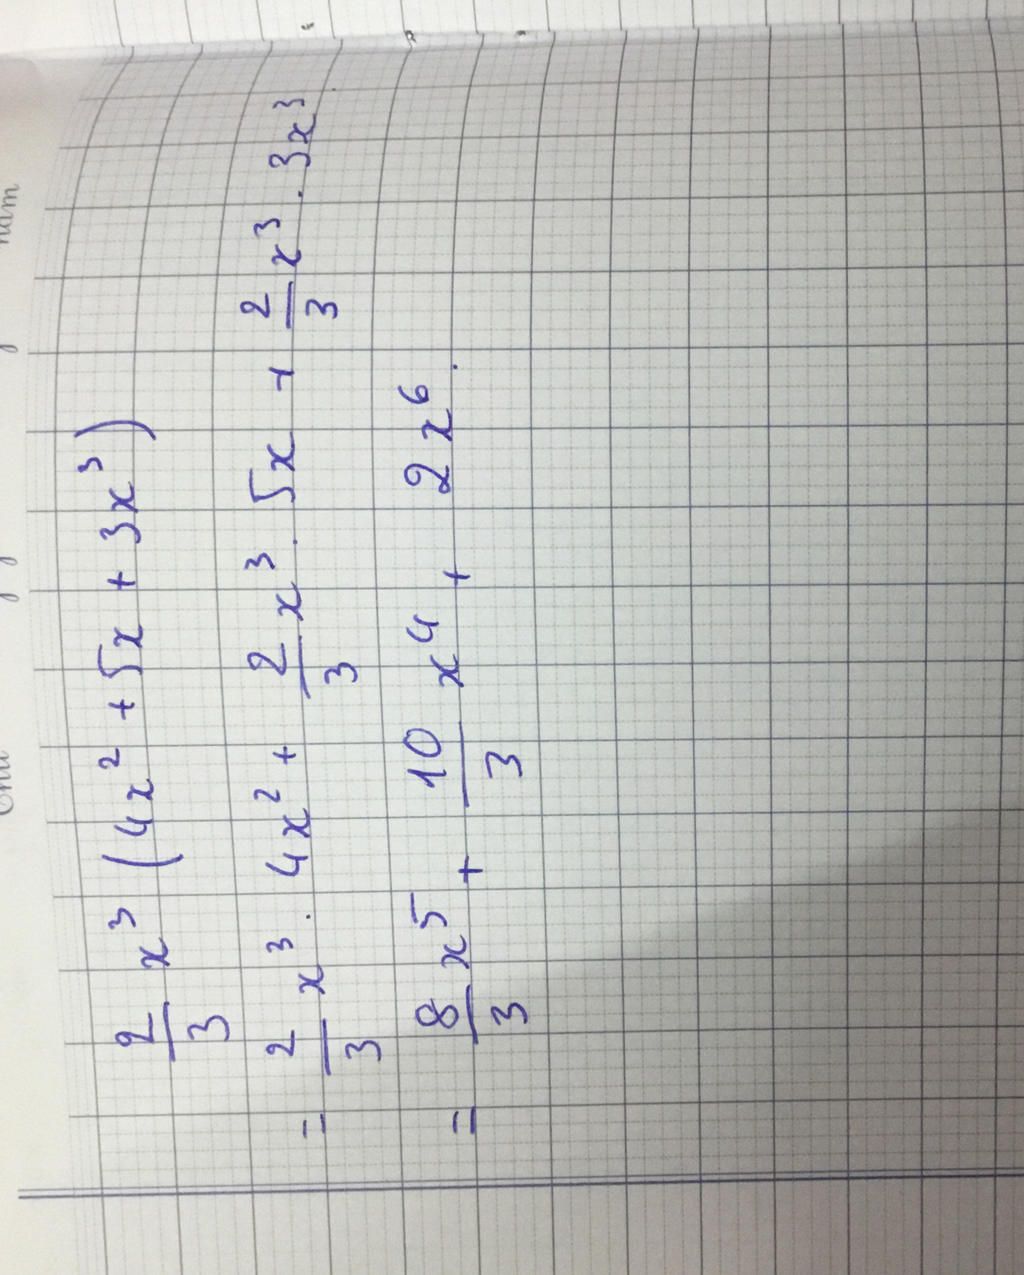 2/3 x³ (4x² + 5x + 3x³)
= 2/3 x³ . 4x² + 2/3 x³ . 5x + 2/3 x³ . 3x³
= 8/3 x⁵ + 10/3 x⁴ + 2x⁶.